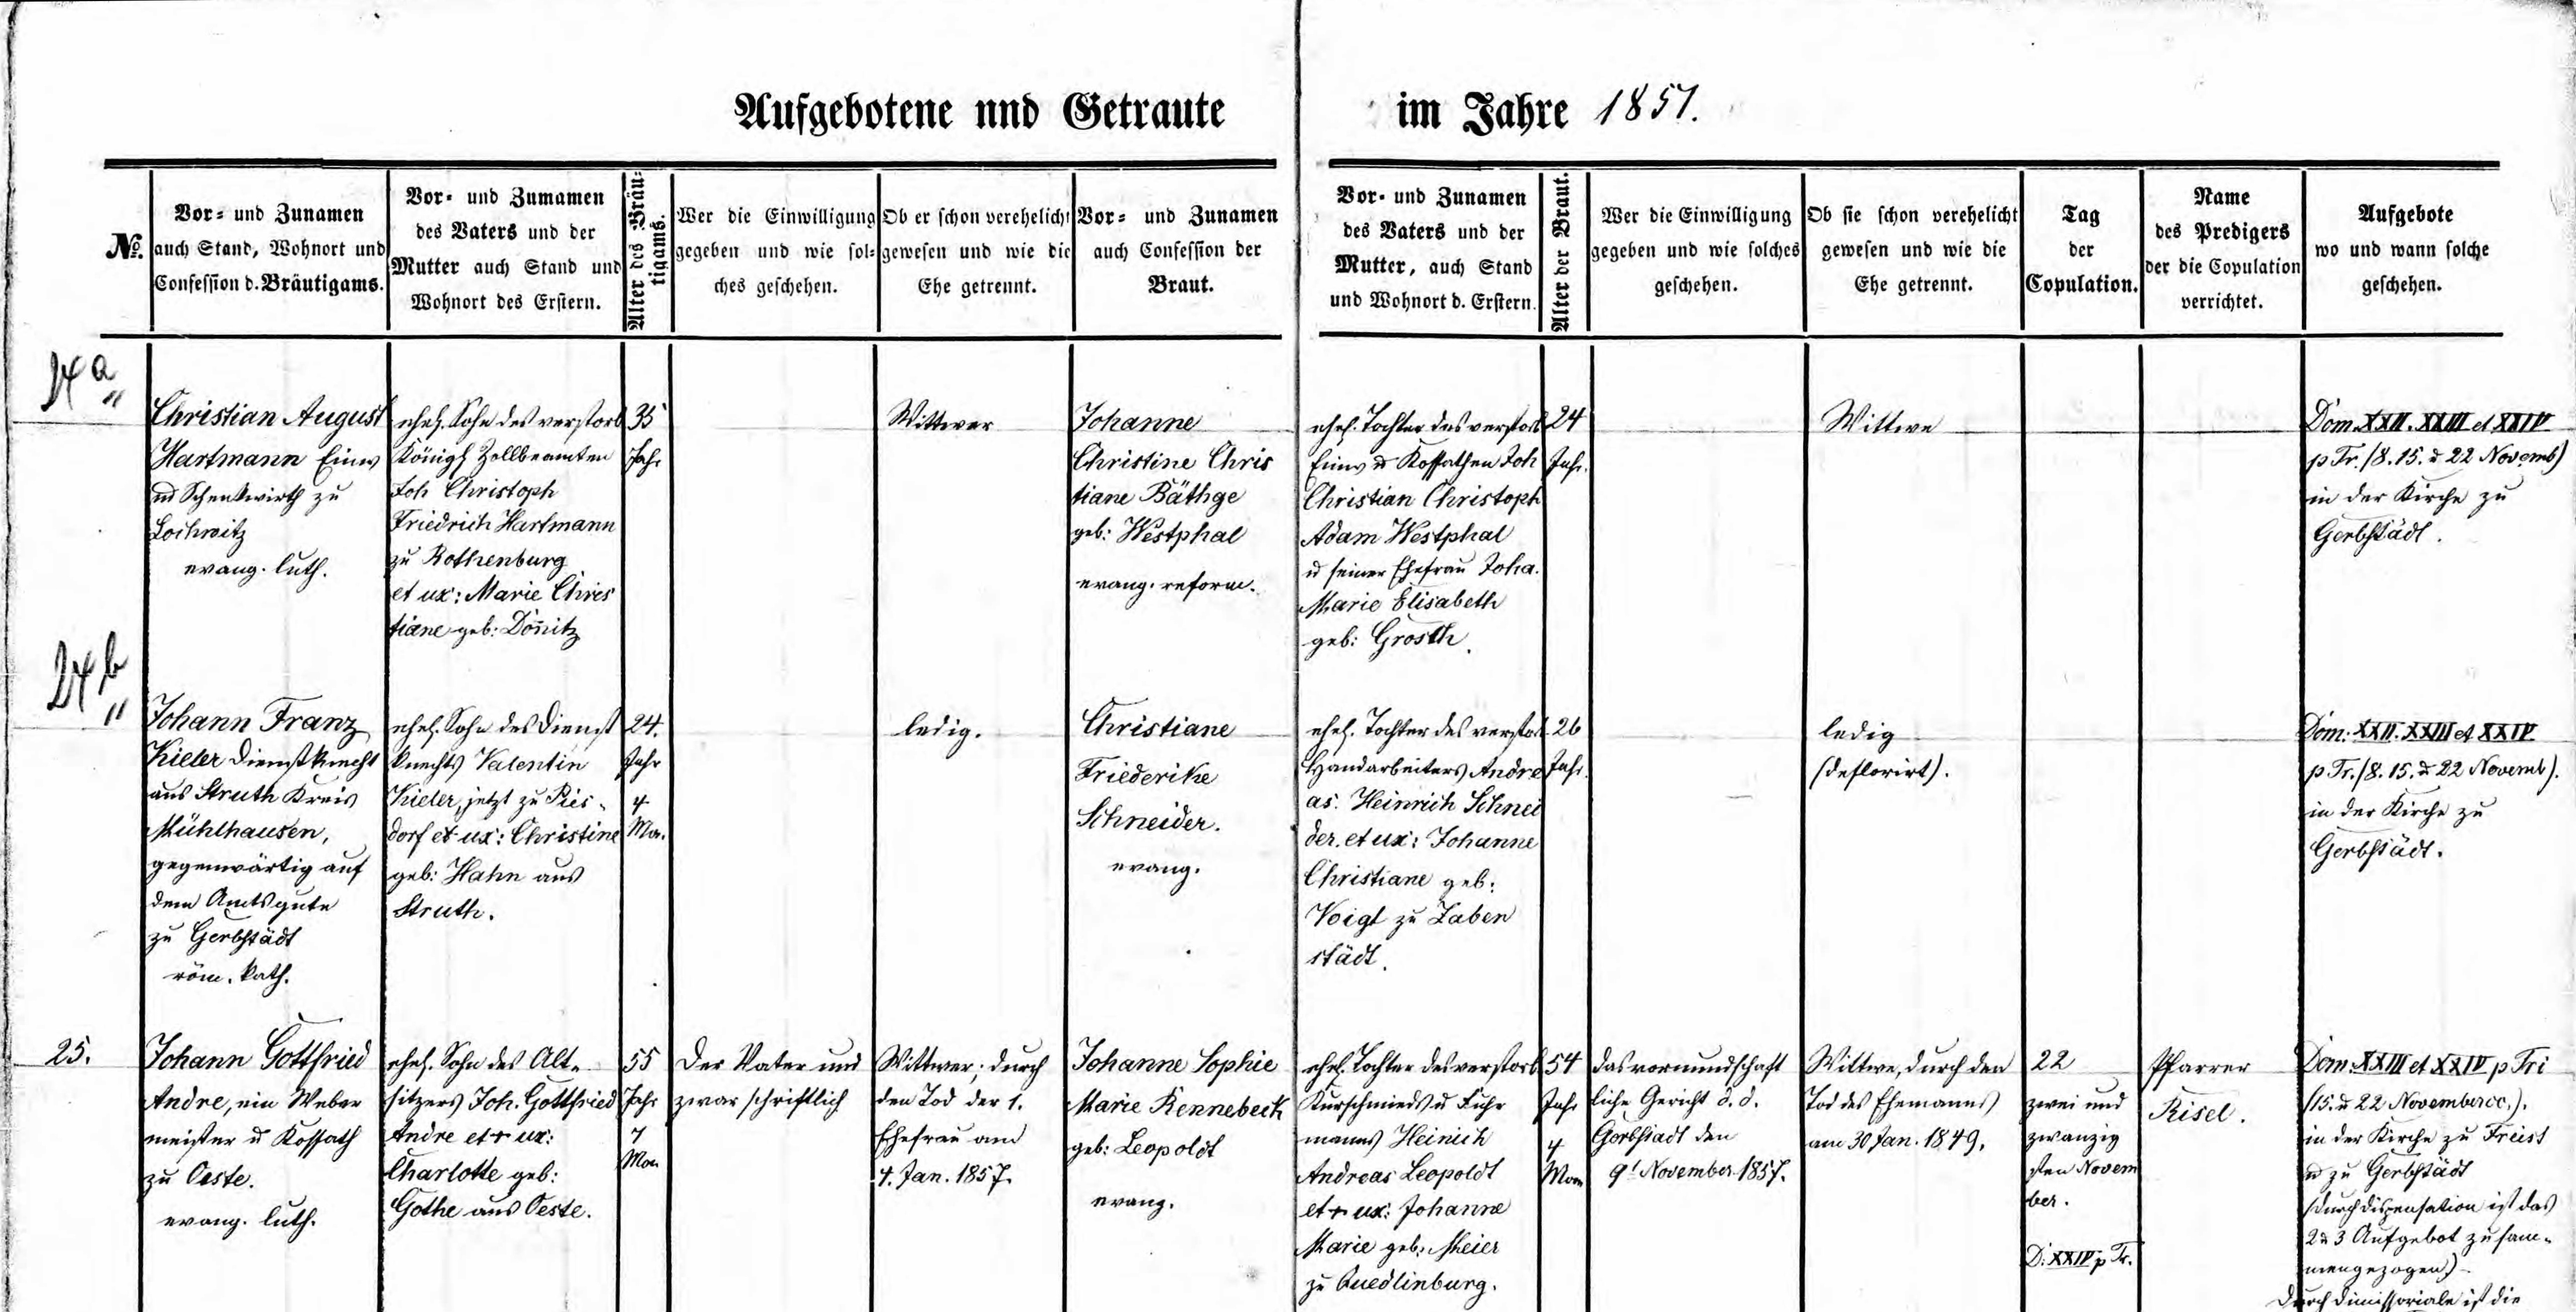 Aufgebotene nnd Getraute im Jahre 1857.
No.
Vor- und Zunamen
auch Stand, Wohnort und
Confession d. Bräutigams.
Vor- und Zumamen
des Vaters und der
Mutter auch Stand und
Wohnort des Erstern.
Alter des Bräu-
tigams.
Wer die Einwilligung
gegeben und wie sol-
ches geschehen.
Ob er schon verehelicht
gewesen und wie die
Ehe getrennt.
Vor- und Zunamen
auch Confession der
Braut.
Vor- und Zunamen
des Vaters und der
Mutter, auch Stand
und Wohnort d. Erstern.
Alter der Braut.
Wer die Einwilligung
gegeben und wie solches
geschehen.
Ob sie schon verehelicht
gewesen und wie die
Ehe getrennt.
Tag
der
Copulation.
Name
des Predigers
der die Copulation
verrichtet.
Aufgebote
wo und wann solche
geschehen.
24 a
Christian August
Hartmann Einw
u Schenkwirth zu
Lochwitz
evang. luth.
ehel. Sohn des verstorb
Königl Zollbeamten
Joh Christoph
Friedrich Hartmann
zu Rothenburg
et ux: Marie Chris
tiane geb: Dönitz
35
Jahr
Wittwer
Johanne
Christine Chris
tiane Bäthge
geb: Westphal
evang. reform.
ehel. Tochter des verstorb
Einw u Kossathen Joh
Christian Christoph
Adam Westphal
u seiner Ehefrau Joha.
Marie Elisabeth
geb: Grosth.
24
Jahr.
Wittwe
Dom. XXII. XXIII et XXIV
p Tr. (8. 15. u 22 Novemb)
in der Kirche zu
Gerbstädt.
24 b
Johann Franz
Kieler Dienstknecht
aus Struth Kreis
Mühlhausen,
gegenwärtig auf
dem Amtsgute
zu Gerbstädt
röm. kath.
ehel. Sohn des Dienst
knechts Valentin
Kieler, jetzt zu Pies-
dorf et ux: Christine
geb: Hahn aus
Struth.
24.
Jahr
4
Mon.
ledig.
Christiane
Friederike
Schneider.
evang.
ehel. Tochter des verstor.
Handarbeiters Andre
as. Heinrich Schnei
der. et ux: Johanne
Christiane geb:
Voigt zu Zaben
städt.
26
Jahr.
ledig
(deflorirt).
Dom: XXII. XXIII et XXIV
p Tr. (8. 15. u 22 Novemb).
in der Kirche zu
Gerbstädt.
25.
Johann Gottfried
Andre, ein Weber
meister u Kossath
zu Oeste.
evang. luth.
ehel. Sohn des Alt-
sitzers Joh. Gottfried
Andre et + ux:
Charlotte geb:
Gothe aus Oeste.
55
Jahr
7
Mon.
Der Vater und
zwar schriftlich
Wittwer; durch
den Tod der 1.
Ehefrau am
4. Jan. 1857.
Johanne Sophie
Marie Rennebeck
geb: Leopoldt
evang.
ehel. Tochter des verstorb
Kurschmieds u Fuhr
manns Heinich
Andreas Leopoldt
et + ux: Johanne
Marie geb: Meier
zu Quedlinburg.
54
Jahr
4
Mon
das vormundschaft
liche Gericht d. d.
Gerbstadt den
9t November 1857.
Wittwe, durch den
Tod des Ehemanns
am 30 Jan. 1849.
22
zwei und
zwanzig
sten Novem
ber.
D: XXIV p Tr.
Pfarrer
Risel.
Dom: XXIII et XXIV p Tri
(15. u 22 November cc.).
in der Kirche zu Freist
u zu Gerbstädt
(durch dispensation ist das
2 u 3 Aufgebot zusam-
mengezogen)
Durch Dimissoriale ist die